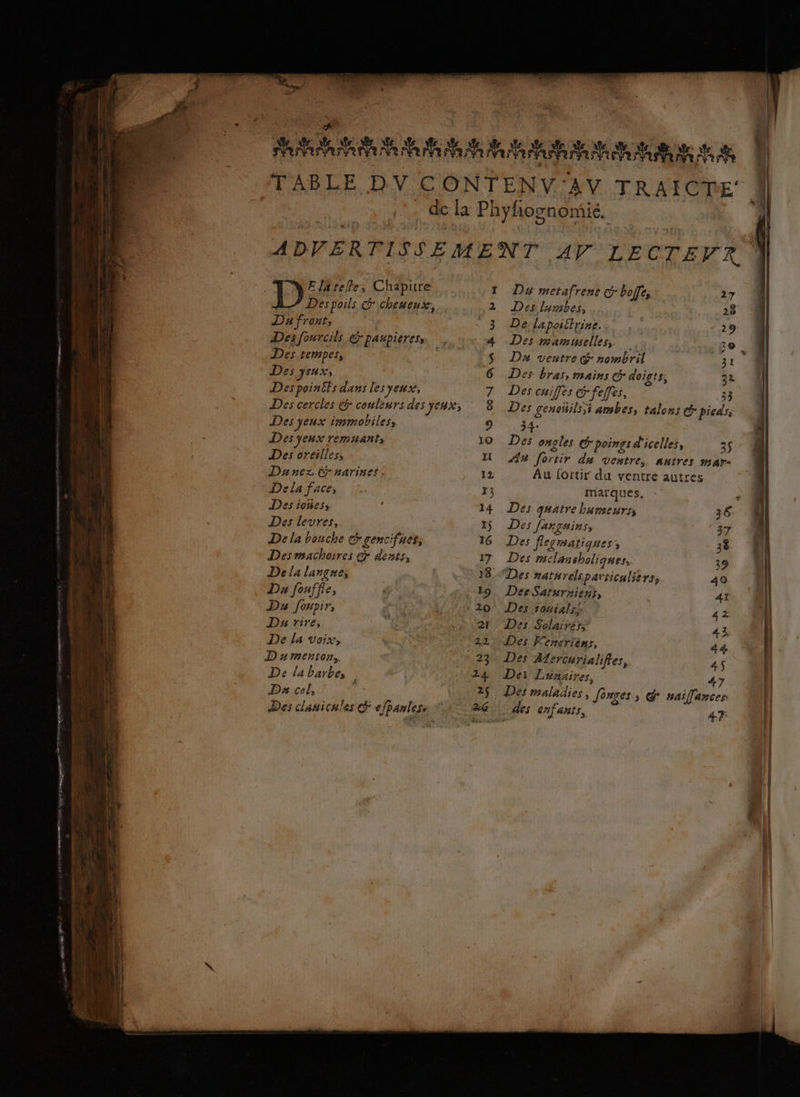 TABLE DV CONTENV AV TRAICTE'
de la Phyſiognomié.
ADVERTISSEMENT AV LECTEVR
DE la teſte, Chapitre 1
Des poils & cheueux, 2
Du front, 3
Des ſourcils & paupieres, 4
Des temples, 5
Des yeux, 6
Des poincts dans les yeux, 7
Des cercles & couleurs des yeux, 8
Des yeux immobiles, 9
Des yeux remuants, 10
Des oreilles, 11
Du nez & narines. 12
De la face, 13
Des ioües, 14
Des levres, 15
De la bouche & gencifues, 16
Des machoires & dents, 17
De la langue, 18
Du ſouffle, 19
Du ſoupir, 20
Du rire, 21
De la voix, 22
Du menton, 23
De la barbe, 24
Du col, 25
Des clauicules & eſpaules. 26
Du metafrene & boſſe, 27
Des lumbes, 28
De la poictrine. 29
Des mammelles, 30
Du ventre & nombril 31
Des bras, mains & doigts, 32
Des cuiſſes & feſſes, 33
Des genoüils, iambes, talons & pieds,
34.
Des ongles & poings d'icelles, 35
Au ſortir du ventre, autres mar-
Au ſortir du ventre autres
marques,
Des quatre humeurs, 36
Des ſanguins, 37
Des flegmatiques, 38
Des melancholiques, 39
Des naturels particuliers, 40
Des Saturniens, 41
Des iouials, 42
Des Solaires, 43
Des Veneriens, 44
Des Mercurialiſtes, 45
Des Lunaires, 47
Des maladies, ſonges, & naiſſances
des enfants, 47